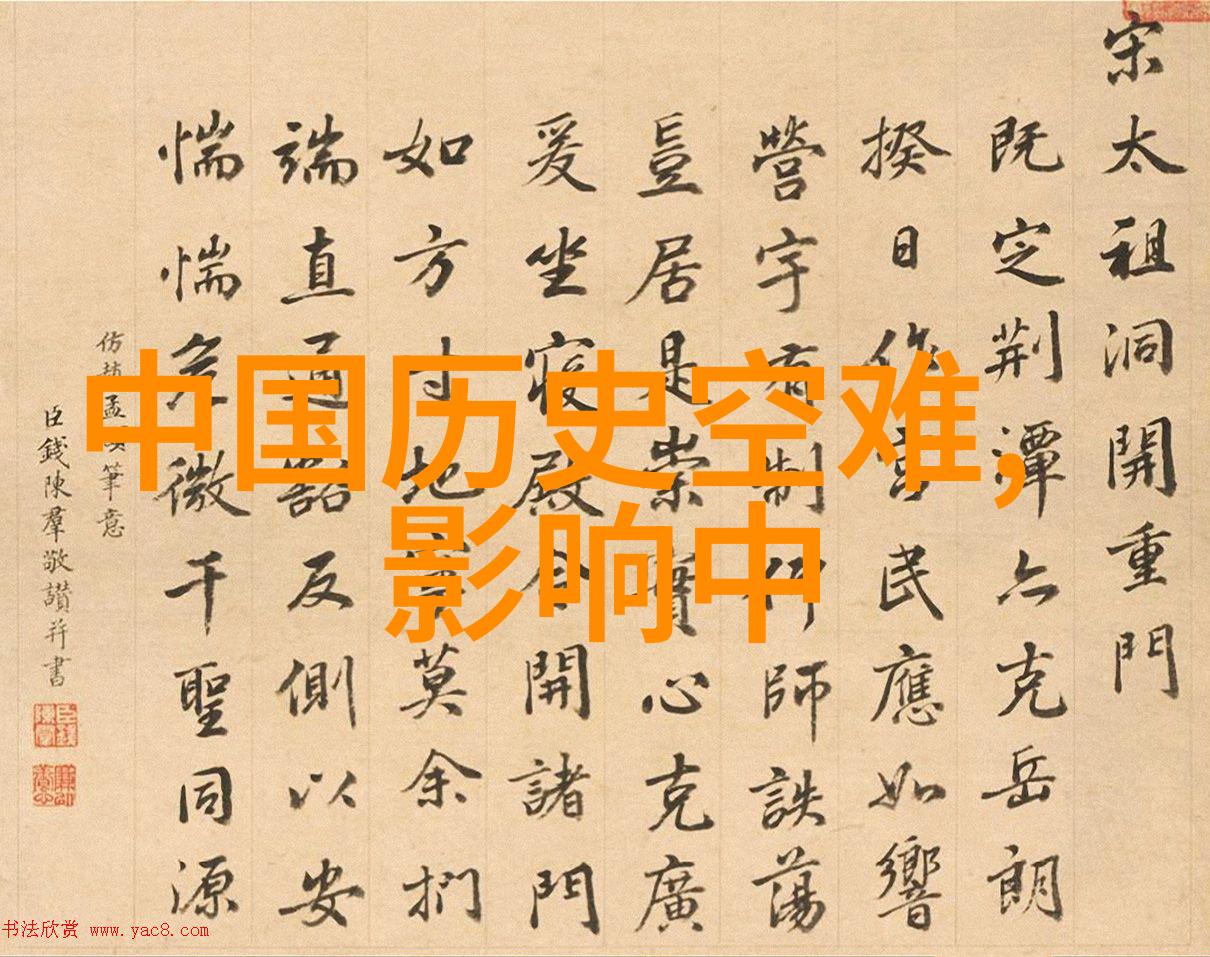 中国历史空难,
影响中
宋太祖洞開重門
既定荆潭亦克岳朗
揆日作宫民應如響
營宇有制師詄蕩
豈居是崇實心克廣
爰坐寝殿令開諸門
如方寸地莫余捫
端直通豁反側以安
惴惴危微千聖同源
仿趙孟頫筆意
臣錢陳羣敬讃并書
书法欣赏 www.yac8.com